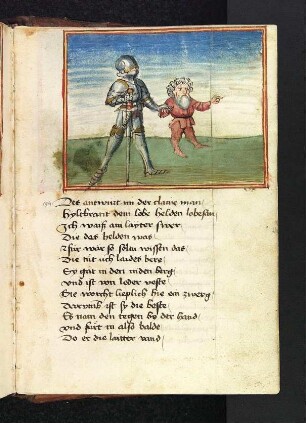 Des antwurt im der claine man
hyltbrant dem lobe helden lobesan
Ich waiß am layter swer
Die das helden was
Für war so solu wissen das
Die tüt uch laides bere
Sy gat in den inden berg
Und ist von leder veste
Die worcht lieplich hie ein zwerg
Darumb ist sy die beste
Er nam den tegen by der hand
Und fürt in also balde
Do er die laitter vand